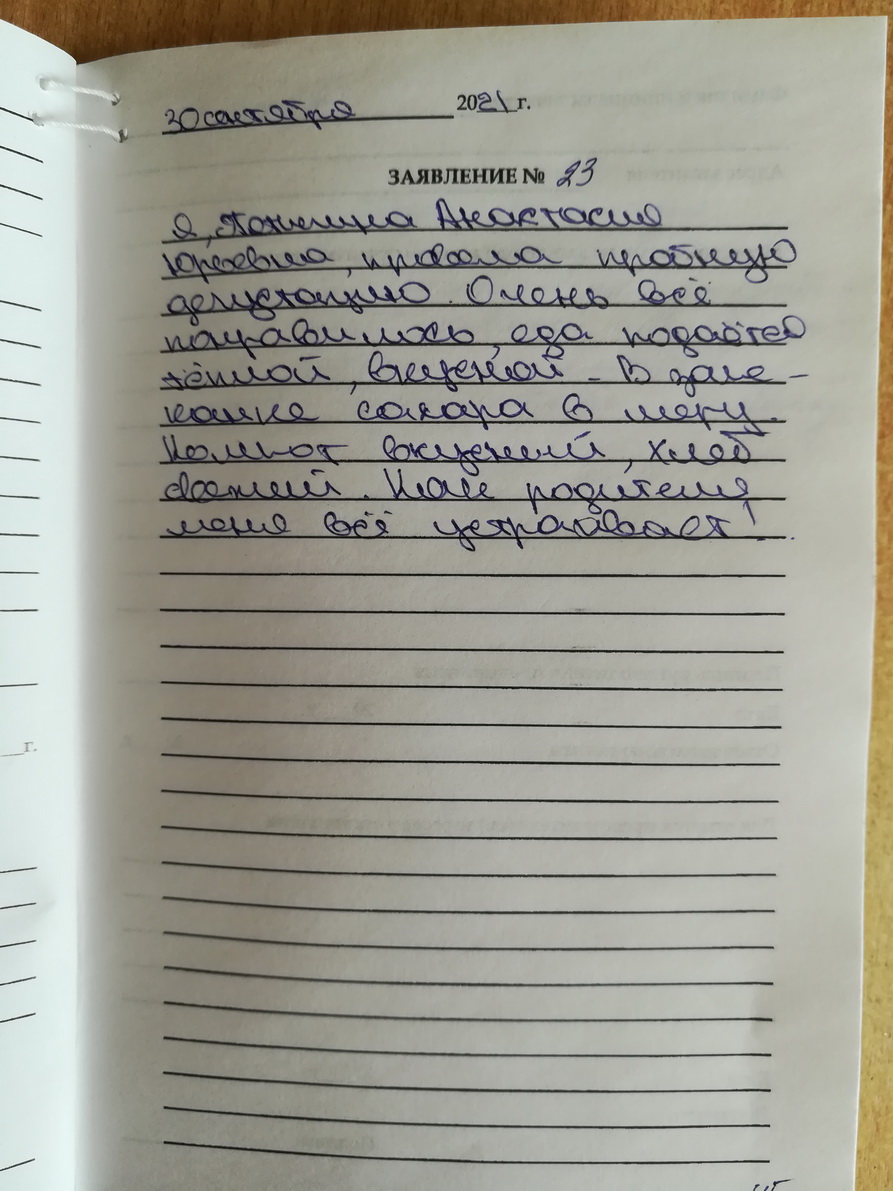 30 сентября 2021 г.
ЗАЯВЛЕНИЕ № 23
Я, Анастасия
Юрьевна, провела пробную
дегустацию. Очень всё
понравилось, еда подаётся
тёплой, вкусной. В запе-
канке сахара в меру.
Компот вкусный, хлеб
свежий. Как родителя
меня всё устраивает!
г.